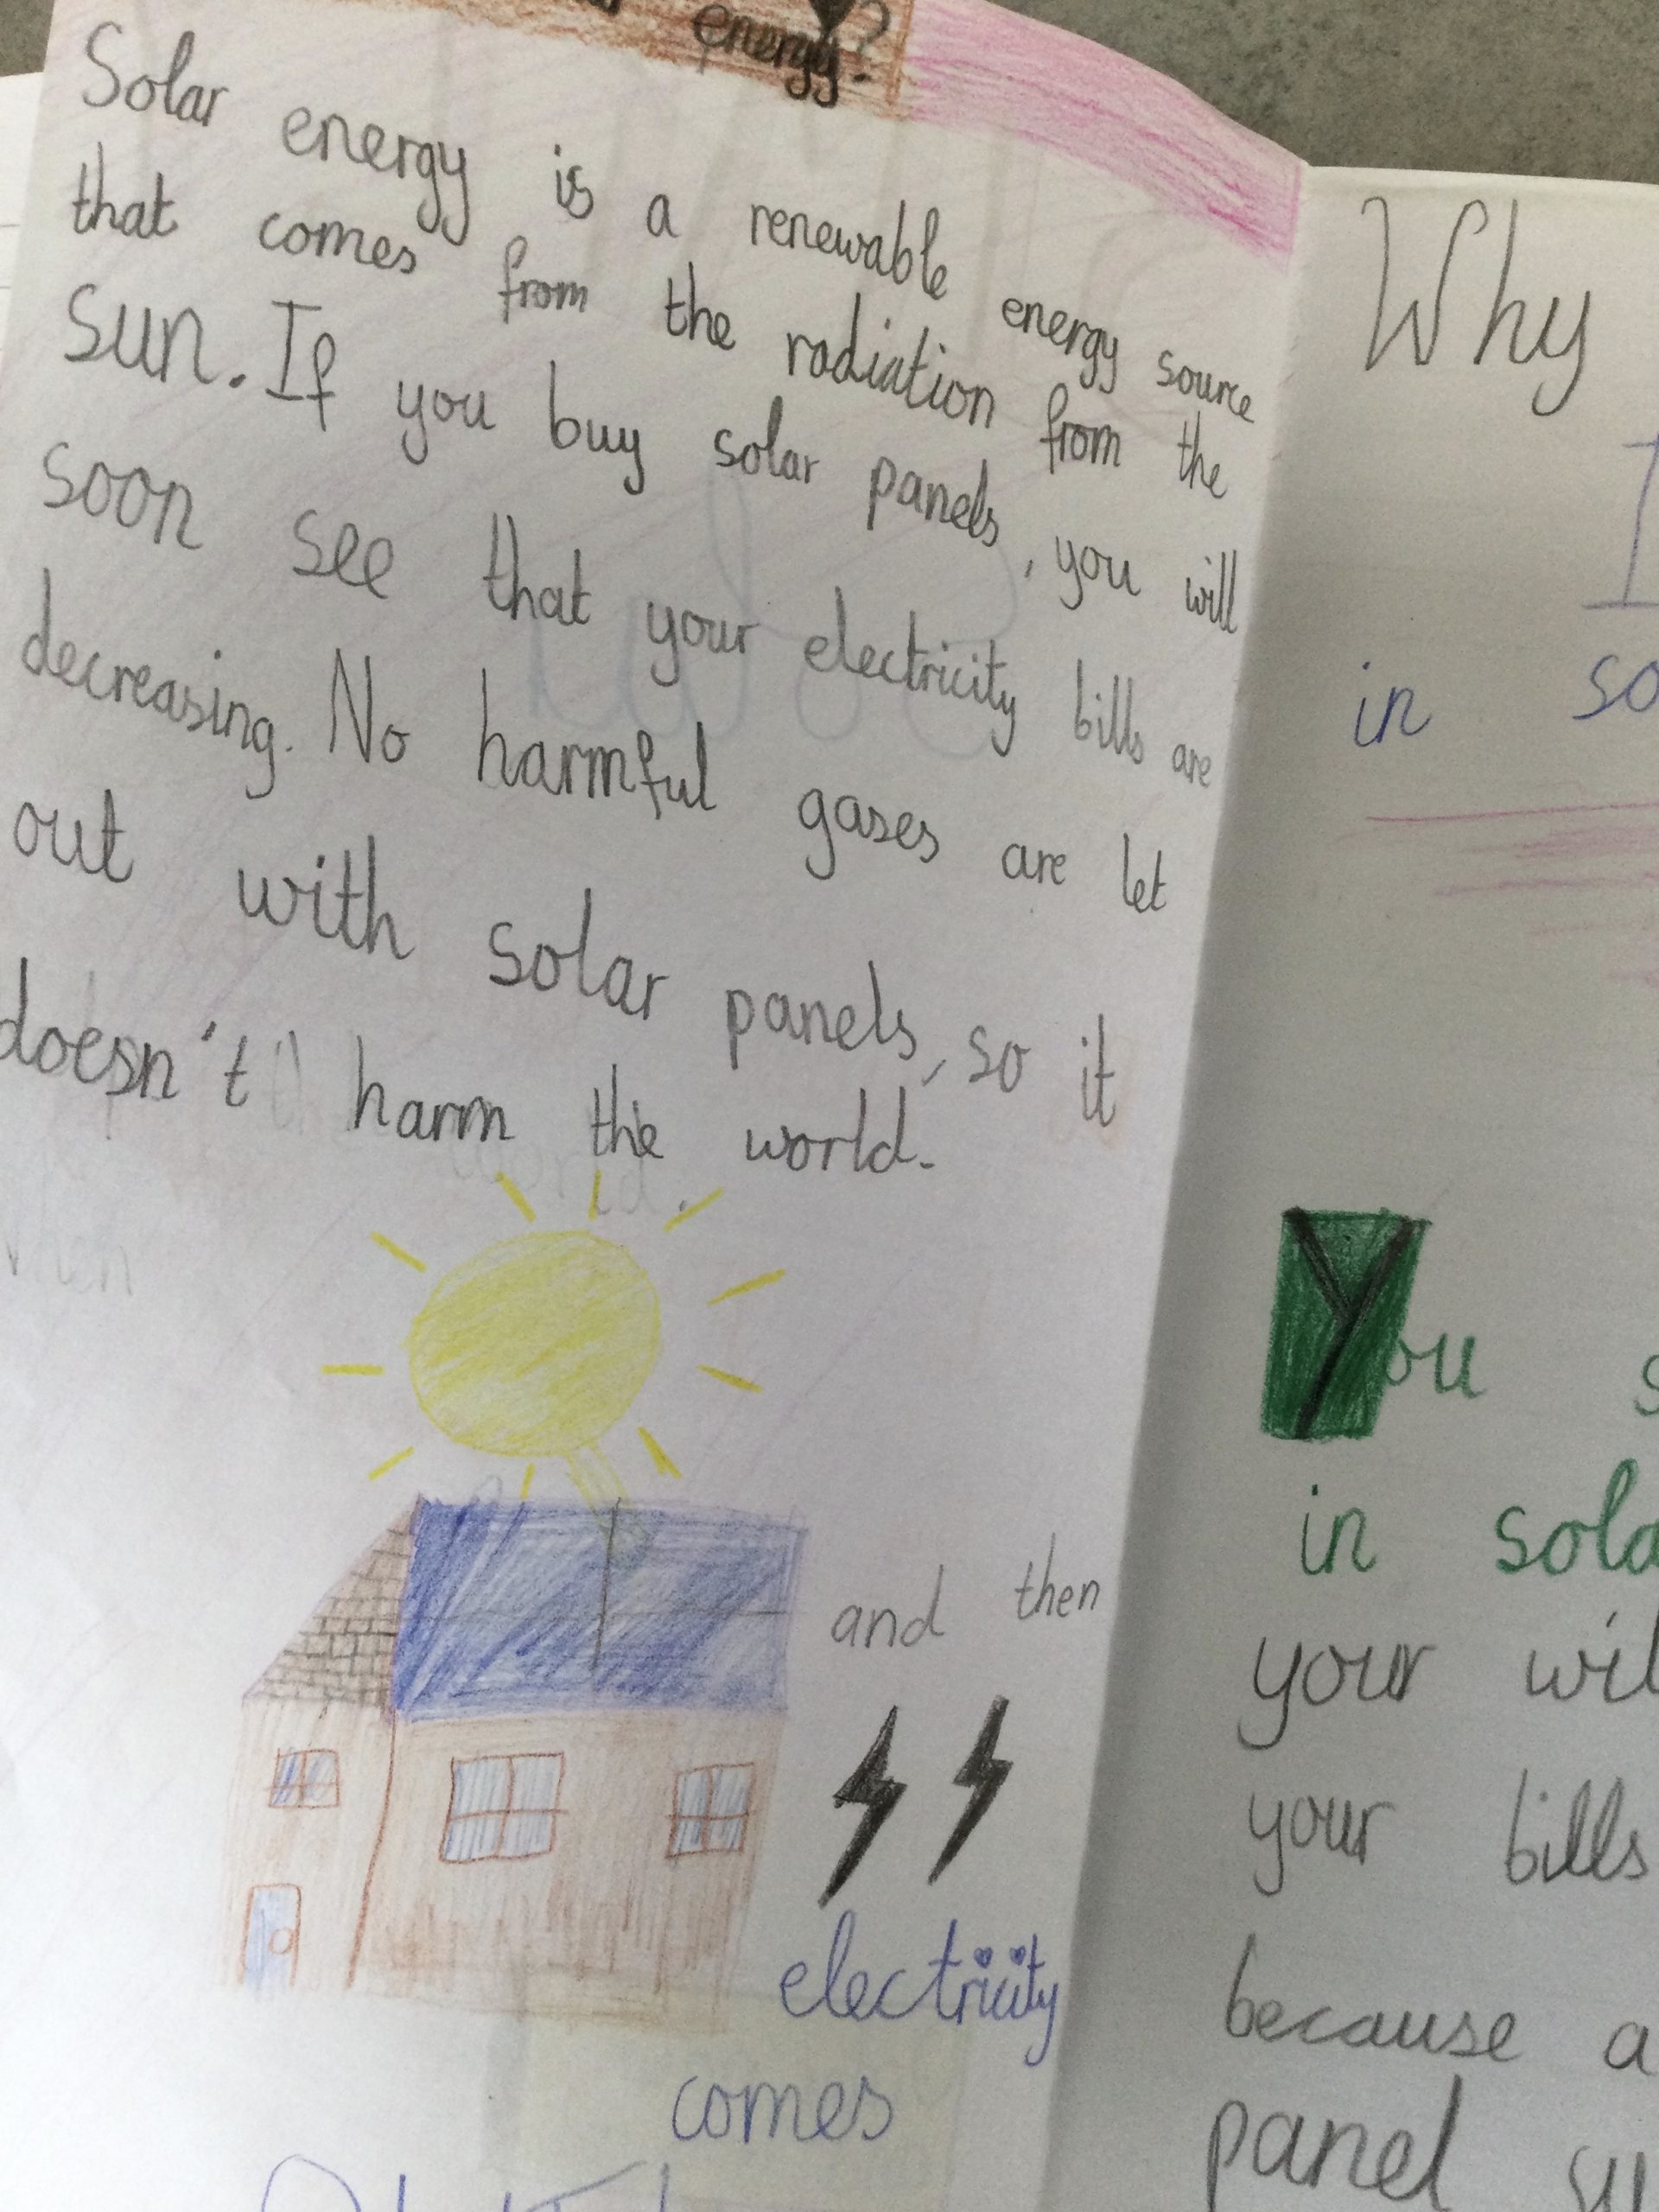 energy?
Solar energy is a renewable energy source
that comes from the radiation from the
sun. If you buy solar panels, you will
soon see that your electricity bills are
decreasing. No harmful gases are let
out with solar panels, so it
doesn't harm the world.
and then
electricity
comes
Why
I
in so
You s
in sola
your wil
your bills
because a
panel su